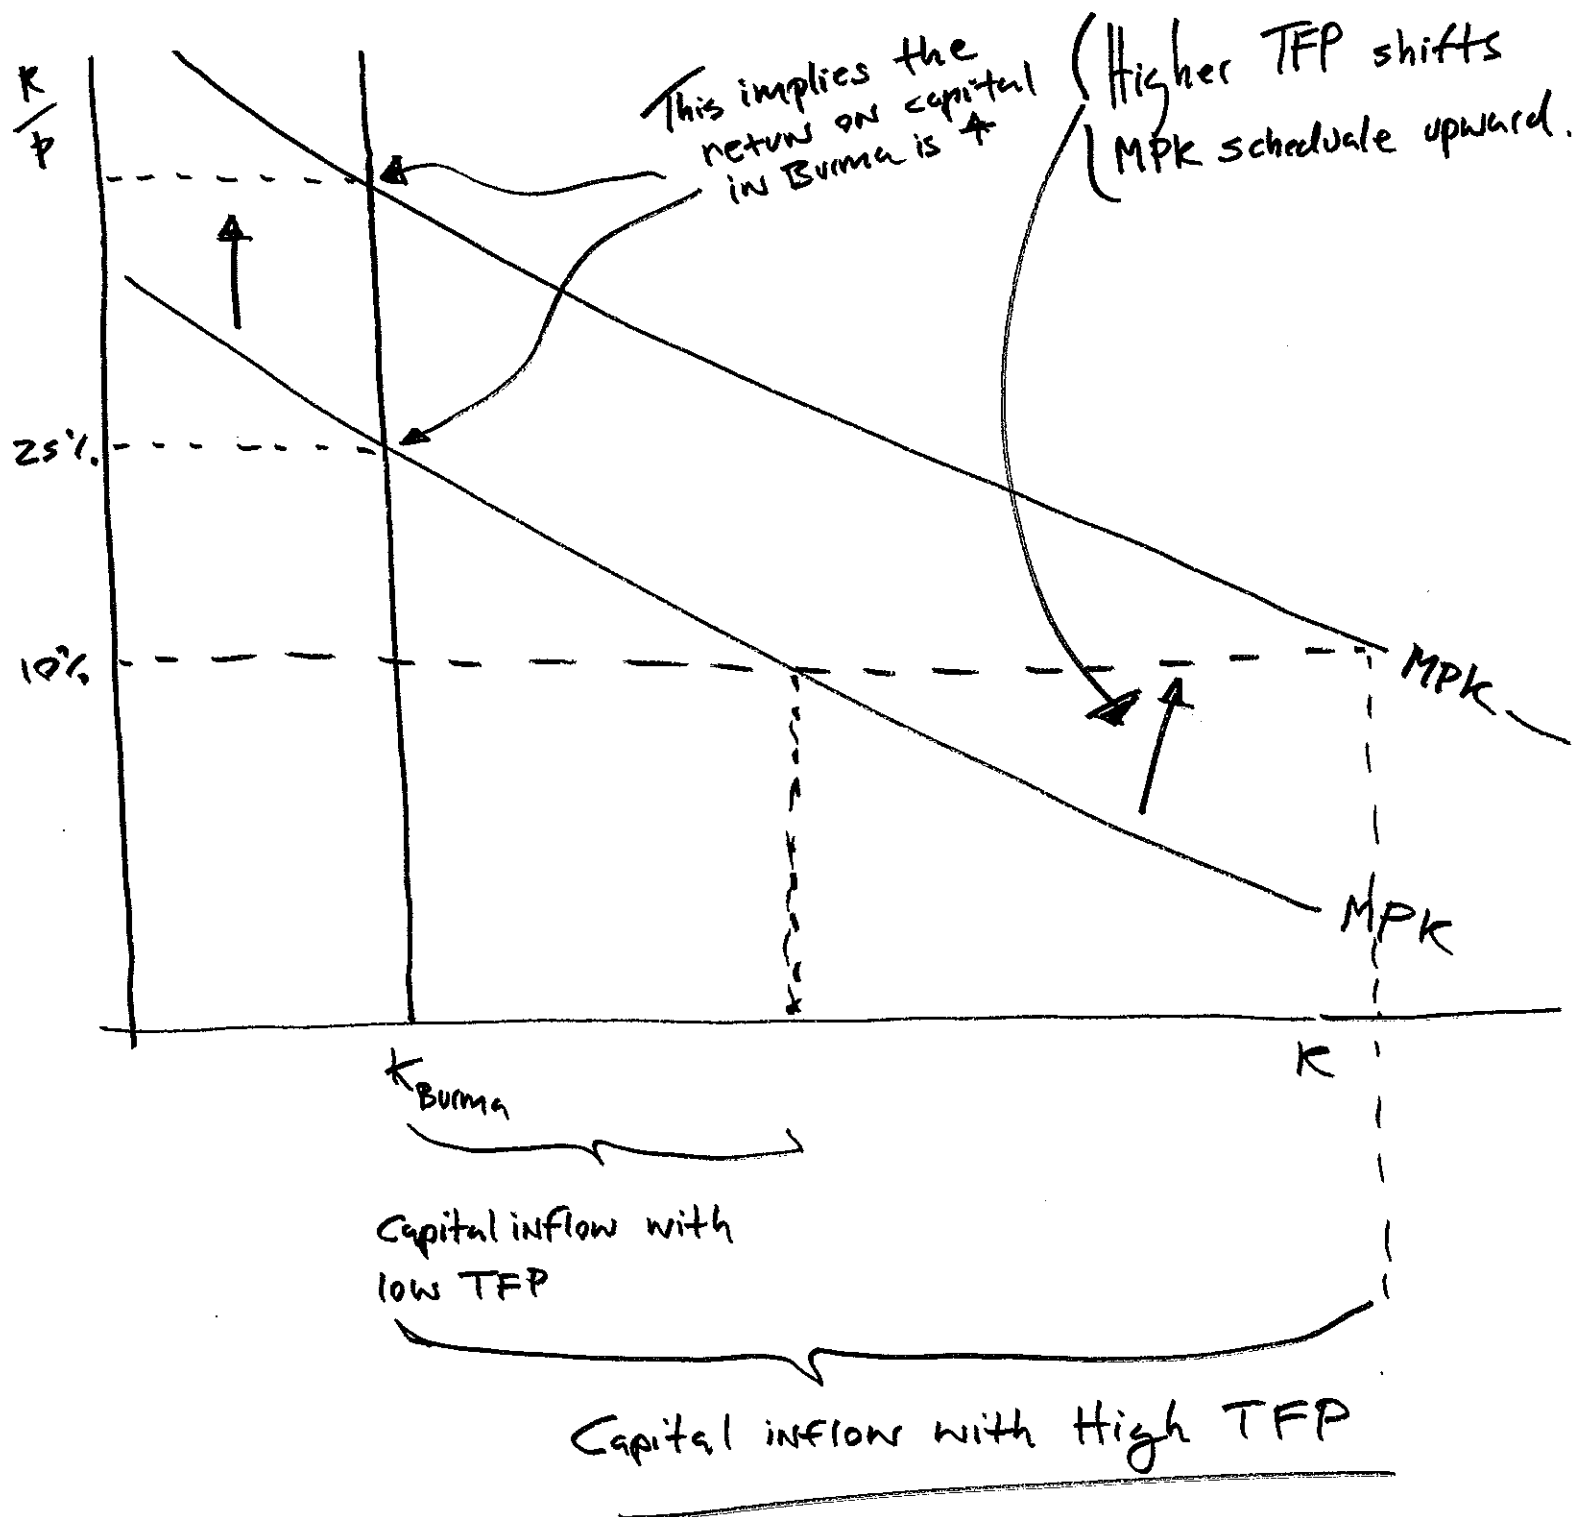 R
P
This implies the
return on capital
in Burma is ↑
Higher TFP shifts
MPK scheduale upward.
25%
10%
MPK
MPK
K Burma
K
Capital inflow with
low TFP
Capital inflow with High TFP